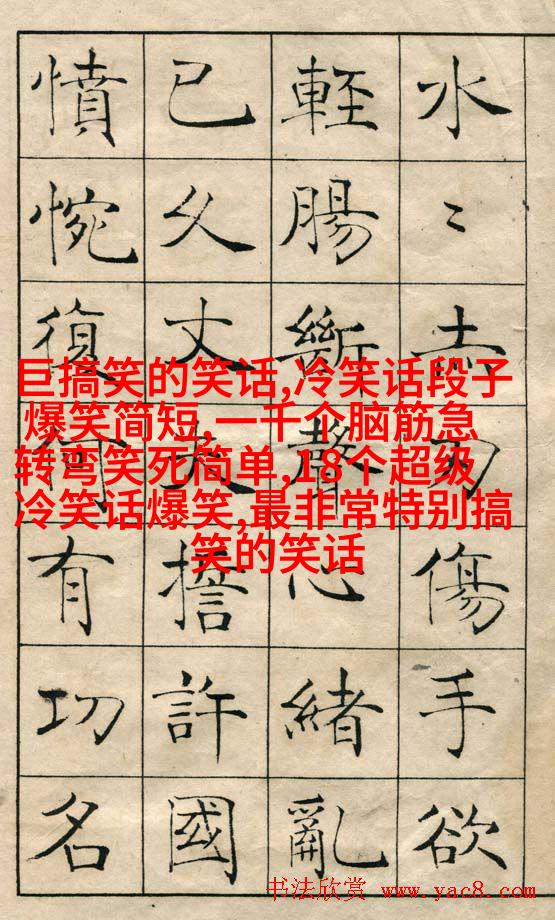 水〻赤刃傷手欲
輕腸斷聲心緒亂
已久丈夫擔許國
憤惋復何有功名
巨搞笑的笑话,冷笑话段子
爆笑简短,一千个脑筋急
转弯笑死简单,18个超级
冷笑话爆笑,最非常特别搞
笑的笑话
书法欣赏 www.yac8.com